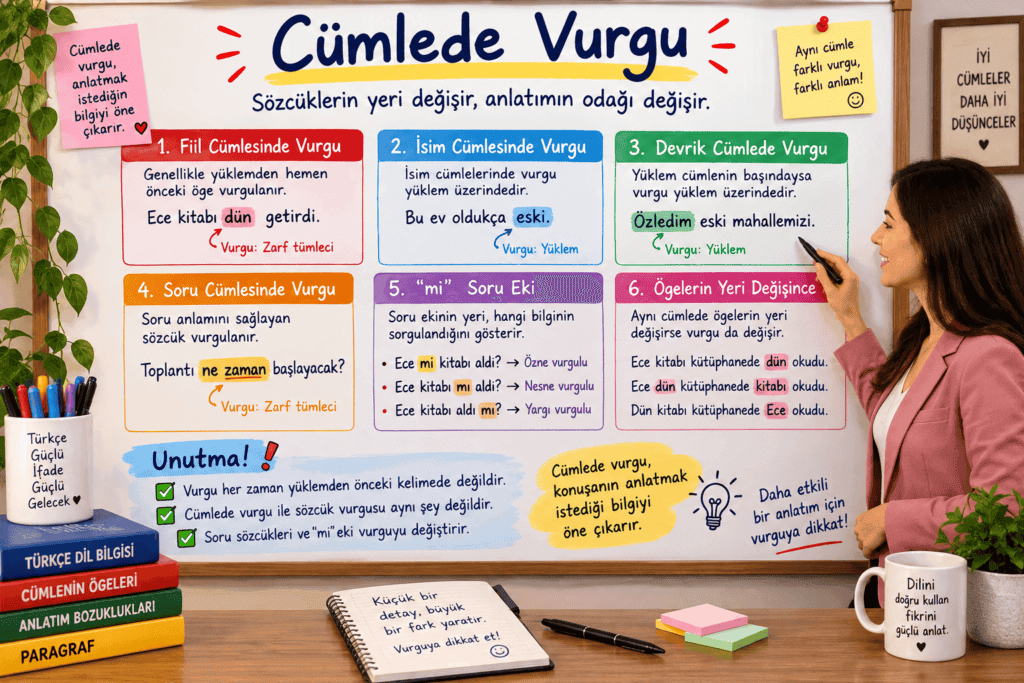 Cümlede Vurgu
Sözcüklerin yeri değişir, anlatımın odağı değişir.
Cümlede
vurgu,
anlatmak
istediğin
bilgiyi öne
çıkarır.
Aynı cümle
farklı vurgu,
farklı anlam!
İYİ
CÜMLELER
DAHA İYİ
DÜŞÜNCELER
1. Fiil Cümlesinde Vurgu
Genellikle yüklemden hemen
önceki öge vurgulanır.
Ece kitabı dün getirdi.
Vurgu: Zarf tümleci
2. İsim Cümlesinde Vurgu
İsim cümlelerinde vurgu
yüklem üzerindedir.
Bu ev oldukça eski.
Vurgu: Yüklem
3. Devrik Cümlede Vurgu
Yüklem cümlenin başındaysa
vurgu yüklem üzerindedir.
Özledim eski mahallemizi.
Vurgu: Yüklem
4. Soru Cümlesinde Vurgu
Soru anlamını sağlayan
sözcük vurgulanır.
Toplantı ne zaman başlayacak?
Vurgu: Zarf tümleci
5. "mi" Soru Eki
Soru ekinin yeri, hangi bilginin
sorgulandığını gösterir.
• Ece mi kitabı aldı? → Özne vurgulu
• Ece kitabı mı aldı? → Nesne vurgulu
• Ece kitabı aldı mı? → Yargı vurgulu
6. Ögelerin Yeri Değişince
Aynı cümlede ögelerin yeri
değişirse vurgu da değişir.
Ece kitabı kütüphanede dün okudu.
Ece dün kütüphanede kitabı okudu.
Dün kitabı kütüphanede Ece okudu.
Unutma!
Vurgu her zaman yüklemden önceki kelimede değildir.
Cümlede vurgu ile sözcük vurgusu aynı şey değildir.
Soru sözcükleri ve "mi" eki vurguyu değiştirir.
Cümlede vurgu,
konuşanın anlatmak
istediği bilgiyi
öne çıkarır.
Daha etkili
bir anlatım için
vurguya dikkat!
Türkçe
Güçlü
İfade
Güçlü
Gelecek
TÜRKÇE DİL BİLGİSİ
CÜMLENİN ÖGELERİ
ANLATIM BOZUKLUKLARI
PARAGRAF
Küçük bir
detay, büyük
bir fark yaratır.
Vurguya dikkat et!
Dilini
doğru kullan
fikrini
güçlü anlat.